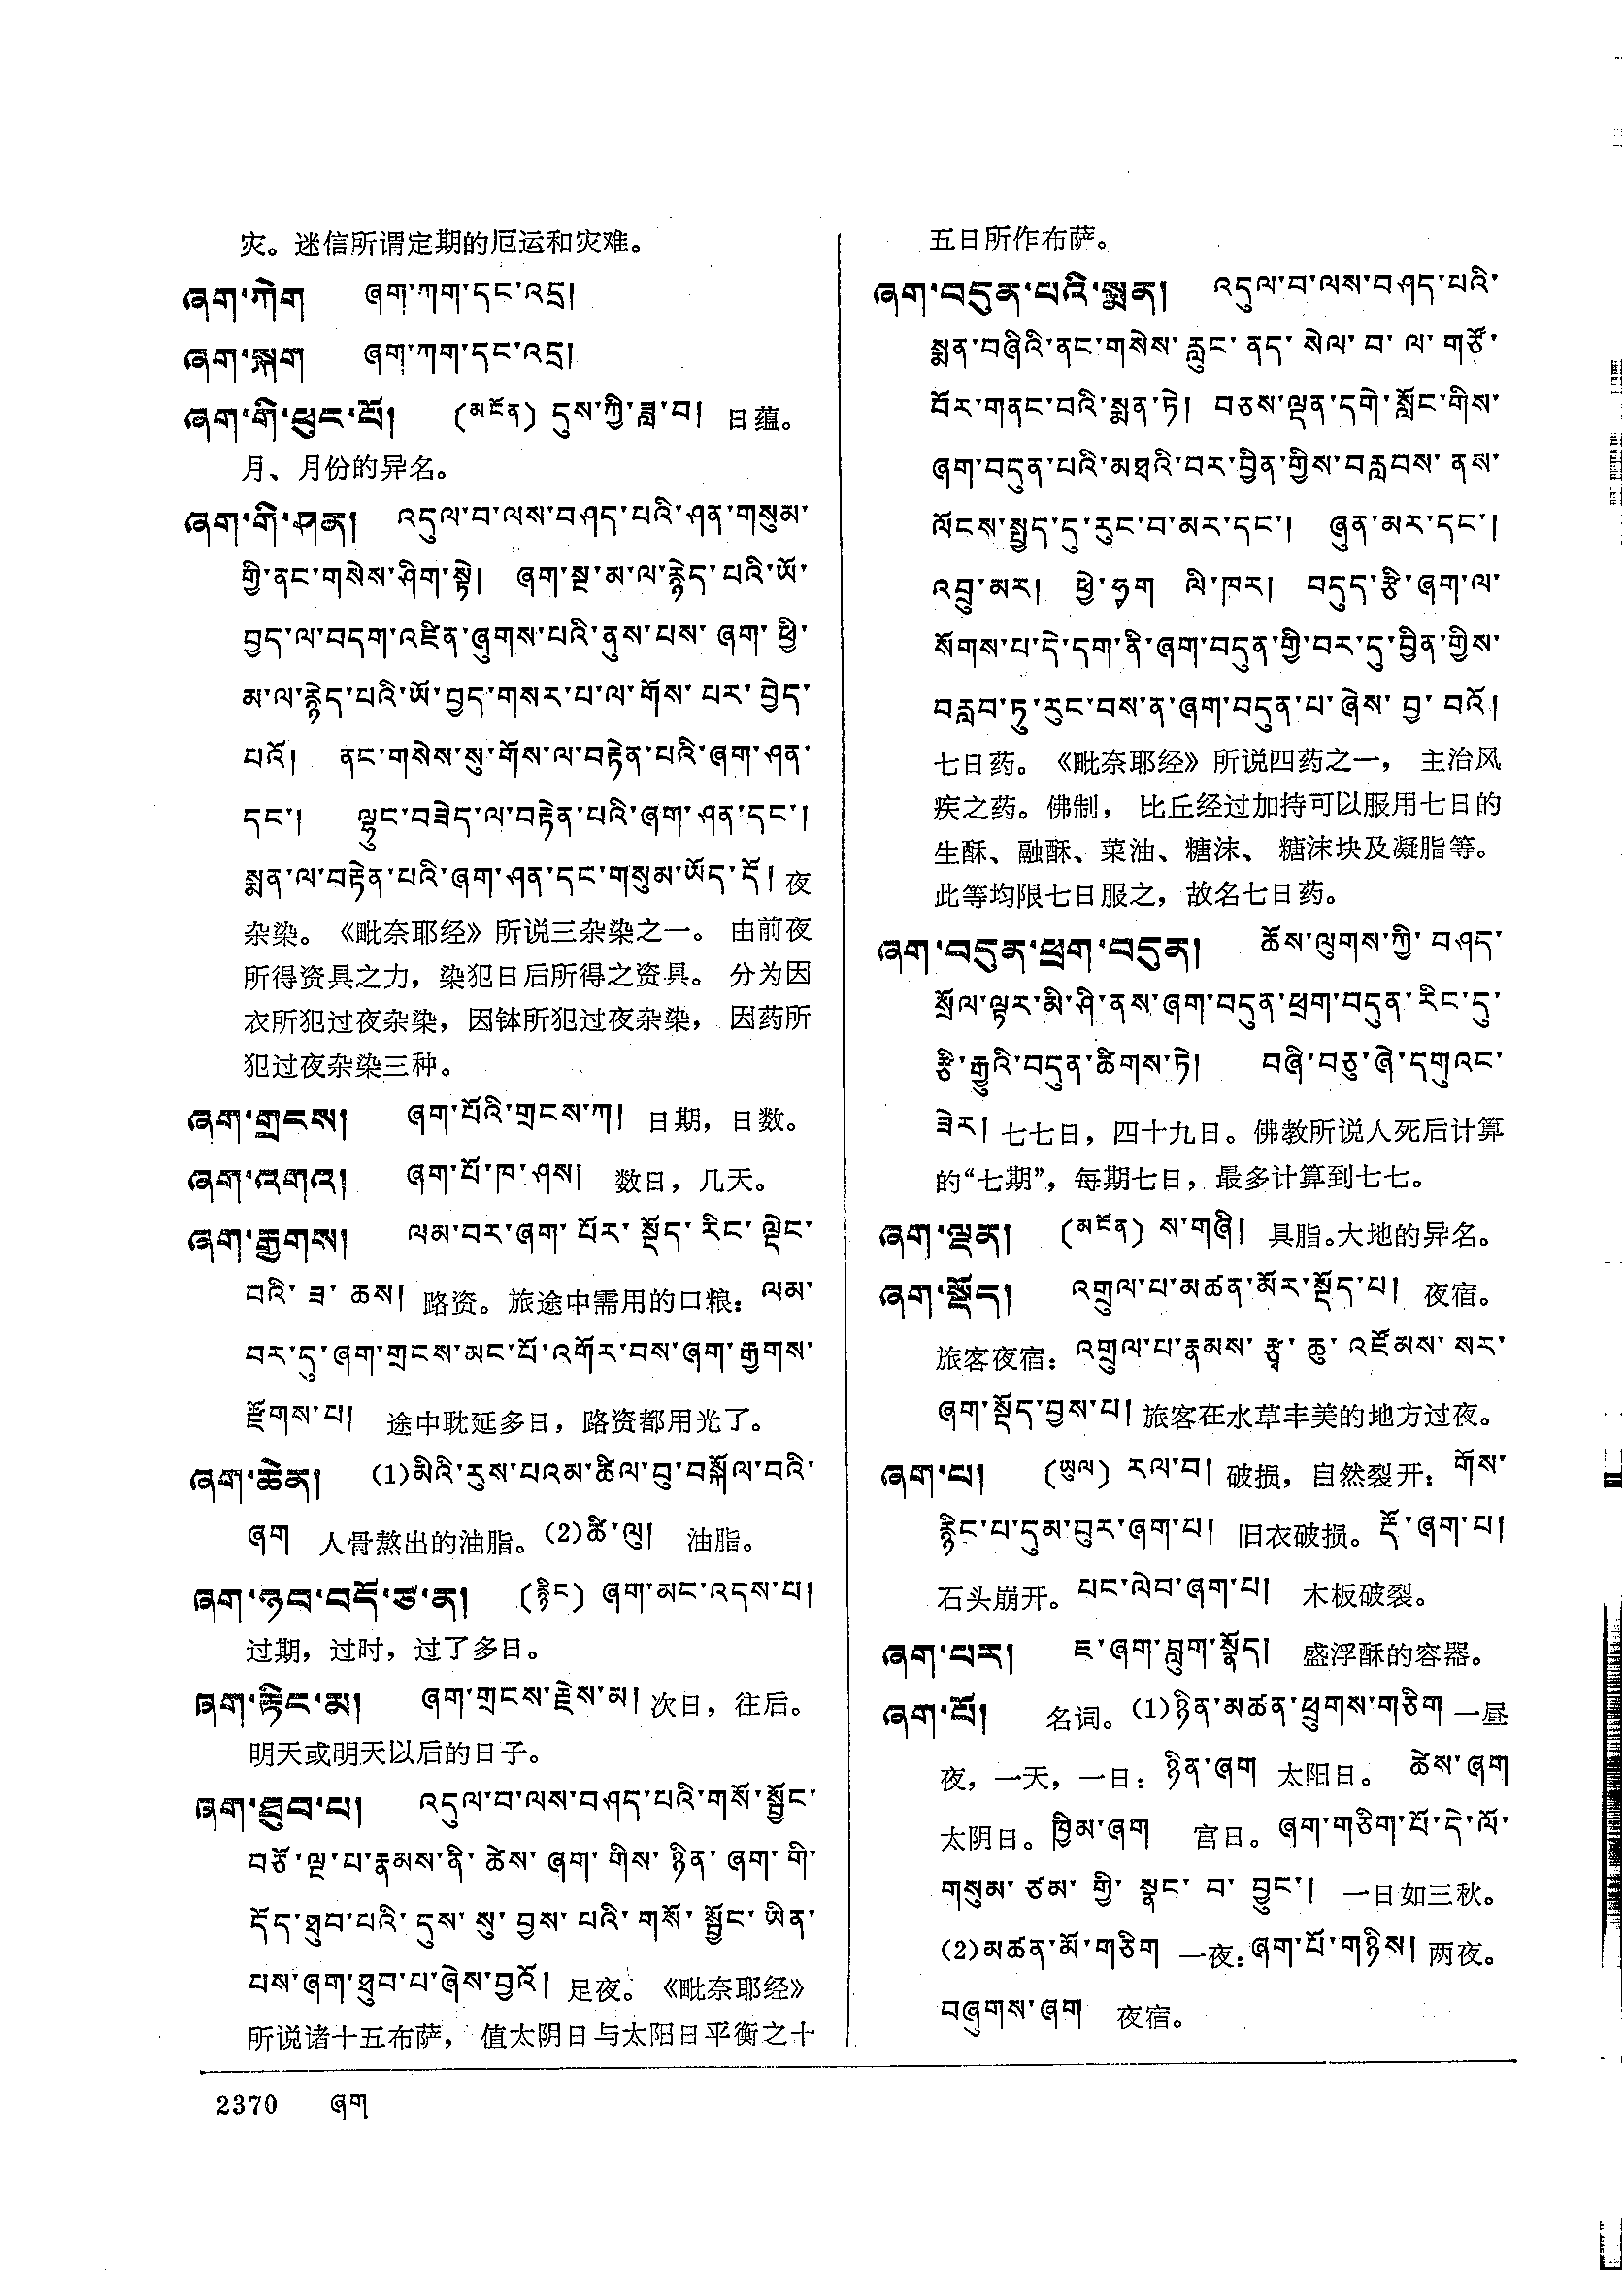 灾。迷信所谓定期的厄运和灾难。
ཞག་ཀེག ཞག་ཀག་དང་འདྲ།
ཞག་སྐག ཞག་ཀག་དང་འདྲ།
ཞག་གི་ཕུང་པོ། (མངོན) དུས་ཀྱི་ཟླ་བ། 日蕴。
月、月份的异名。
ཞག་གི་ཤན། འདུལ་བ་ལས་བཤད་པའི་ཤན་གསུམ་
གྱི་ནང་གསེས་ཤིག་སྟེ། ཞག་སྔ་མ་ལ་རྙེད་པའི་ཡོ་
བྱད་ལ་བདག་འཛིན་ཞུགས་པའི་ནུས་པས་ ཞག་ ཕྱི་
མ་ལ་རྙེད་པའི་ཡོ་བྱད་གསར་པ་ལ་གོས་ པར་ བྱེད་
པའོ། ནང་གསེས་སུ་གོས་ལ་བརྟེན་པའི་ཞག་ཤན་
དང་། ལྷུང་བཟེད་ལ་བརྟེན་པའི་ཞག་ཤན་དང་།
སྨན་ལ་བརྟེན་པའི་ཞག་ཤན་དང་གསུམ་ཡོད་དོ། 夜
杂染。《毗奈耶经》所说三杂染之一。 由前夜
所得资具之力，染犯日后所得之资具。 分为因
衣所犯过夜杂染，因钵所犯过夜杂染， 因药所
犯过夜杂染三种。
ཞག་གྲངས། ཞག་པོའི་གྲངས་ཀ། 日期，日数。
ཞག་འགའ། ཞག་པོ་ཁ་ཤས། 数日，几天。
ཞག་རྒྱགས། ལམ་བར་ཞག་ པོར་ སྡོད་ རིང་ ལྡེང་
བའི་ ཟ་ ཆས། 路资。旅途中需用的口粮：ལམ་
བར་དུ་ཞག་གྲངས་མང་པོ་འགོར་བས་ཞག་རྒྱགས་
རྫོགས་པ། 途中耽延多日，路资都用光了。
ཞག་ཆེན། (1)མིའི་རུས་པའམ་ཚིལ་བུ་བསྐོལ་བའི་
ཞག 人骨熬出的油脂。(2)ཚི་ལུ། 油脂。
ཞག་ཉབ་བདོ་ཙ་ན། (རྙིང) ཞག་མང་འདས་པ།
过期，过时，过了多日。
ཞག་རྟིང་མ། ཞག་གྲངས་རྗེས་མ། 次日，往后。
明天或明天以后的日子。
ཞག་ཐུབ་པ། འདུལ་བ་ལས་བཤད་པའི་གསོ་སྦྱོང་
བཅོ་ལྔ་པ་རྣམས་ནི་ ཚེས་ ཞག་ གིས་ ཉིན་ ཞག་ གི་
དོད་ཐུབ་པའི་ དུས་ སུ་ བྱས་ པའི་ གསོ་ སྦྱོང་ ཡིན་
པས་ཞག་ཐུབ་པ་ཞེས་བྱའོ། 足夜。《毗奈耶经》
所说诸十五布萨， 值太阴日与太阳日平衡之十
五日所作布萨。
ཞག་བདུན་པའི་སྨན། འདུལ་བ་ལས་བཤད་པའི་
སྨན་བཞིའི་ནང་གསེས་ རླུང་ ནད་ སེལ་ བ་ ལ་ གཙོ་
བོར་གནང་བའི་སྨན་ཏེ། བཅས་ལྡན་དགེ་སློང་གིས་
ཞག་བདུན་པའི་མཐའི་བར་བྱིན་གྱིས་བརླབས་ ནས་
ལོངས་སྤྱད་དུ་རུང་བ་མར་དང་། ཞུན་མར་དང་།
འབྲུ་མར། ཕྱེ་ཧྭག ལི་ཁར། བདུད་རྩི་ཞག་ལ་
སོགས་པ་དེ་དག་ནི་ཞག་བདུན་གྱི་བར་དུ་བྱིན་གྱིས་
བརླབ་ཏུ་རུང་བས་ན་ཞག་བདུན་པ་ཞེས་ བྱ་ བའོ།
七日药。《毗奈耶经》所说四药之一， 主治风
疾之药。佛制， 比丘经过加持可以服用七日的
生酥、融酥、菜油、糖沫、 糖沫块及凝脂等。
此等均限七日服之，故名七日药。
ཞག་བདུན་ཕྲག་བདུན། ཆོས་ལུགས་ཀྱི་ བཤད་
སྲོལ་ལྟར་མི་ཤི་ནས་ཞག་བདུན་ཕྲག་བདུན་རིང་དུ་
རྩི་རྒྱུའི་བདུན་ཚིགས་ཏེ། བཞི་བཅུ་ཞེ་དགུའང་
ཟེར། 七七日，四十九日。佛教所说人死后计算
的“七期”，每期七日，最多计算到七七。
ཞག་ལྡན། (མངོན) ས་གཞི། 具脂。大地的异名。
ཞག་སྡོད། འགྲུལ་པ་མཚན་མོར་སྡོད་པ། 夜宿。
旅客夜宿：འགྲུལ་པ་རྣམས་ རྩྭ་ ཆུ་ འཛོམས་ སར་
ཞག་སྡོད་བྱས་པ། 旅客在水草丰美的地方过夜。
ཞག་པ། (ཡུལ) རལ་བ། 破损，自然裂开：གོས་
རྙིང་པ་དུམ་བུར་ཞག་པ། 旧衣破损。རྡོ་ཞག་པ།
石头崩开。པང་ལེབ་ཞག་པ། 木板破裂。
ཞག་པར། ཇ་ཞག་བླུག་སྣོད། 盛浮酥的容器。
ཞག་པོ། 名词。(1)ཉིན་མཚན་ཕྲུགས་གཅིག 一昼
夜，一天，一日：ཉིན་ཞག 太阳日。 ཚེས་ཞག
太阴日。ཁྱིམ་ཞག 宫日。ཞག་གཅིག་པོ་དེ་ལོ་
གསུམ་ ཙམ་ གྱི་ སྣང་ བ་ བྱུང་། 一日如三秋。
(2)མཚན་མོ་གཅིག 一夜：ཞག་པོ་གཉིས། 两夜。
བཞུགས་ཞག 夜宿。
2370 ཞག